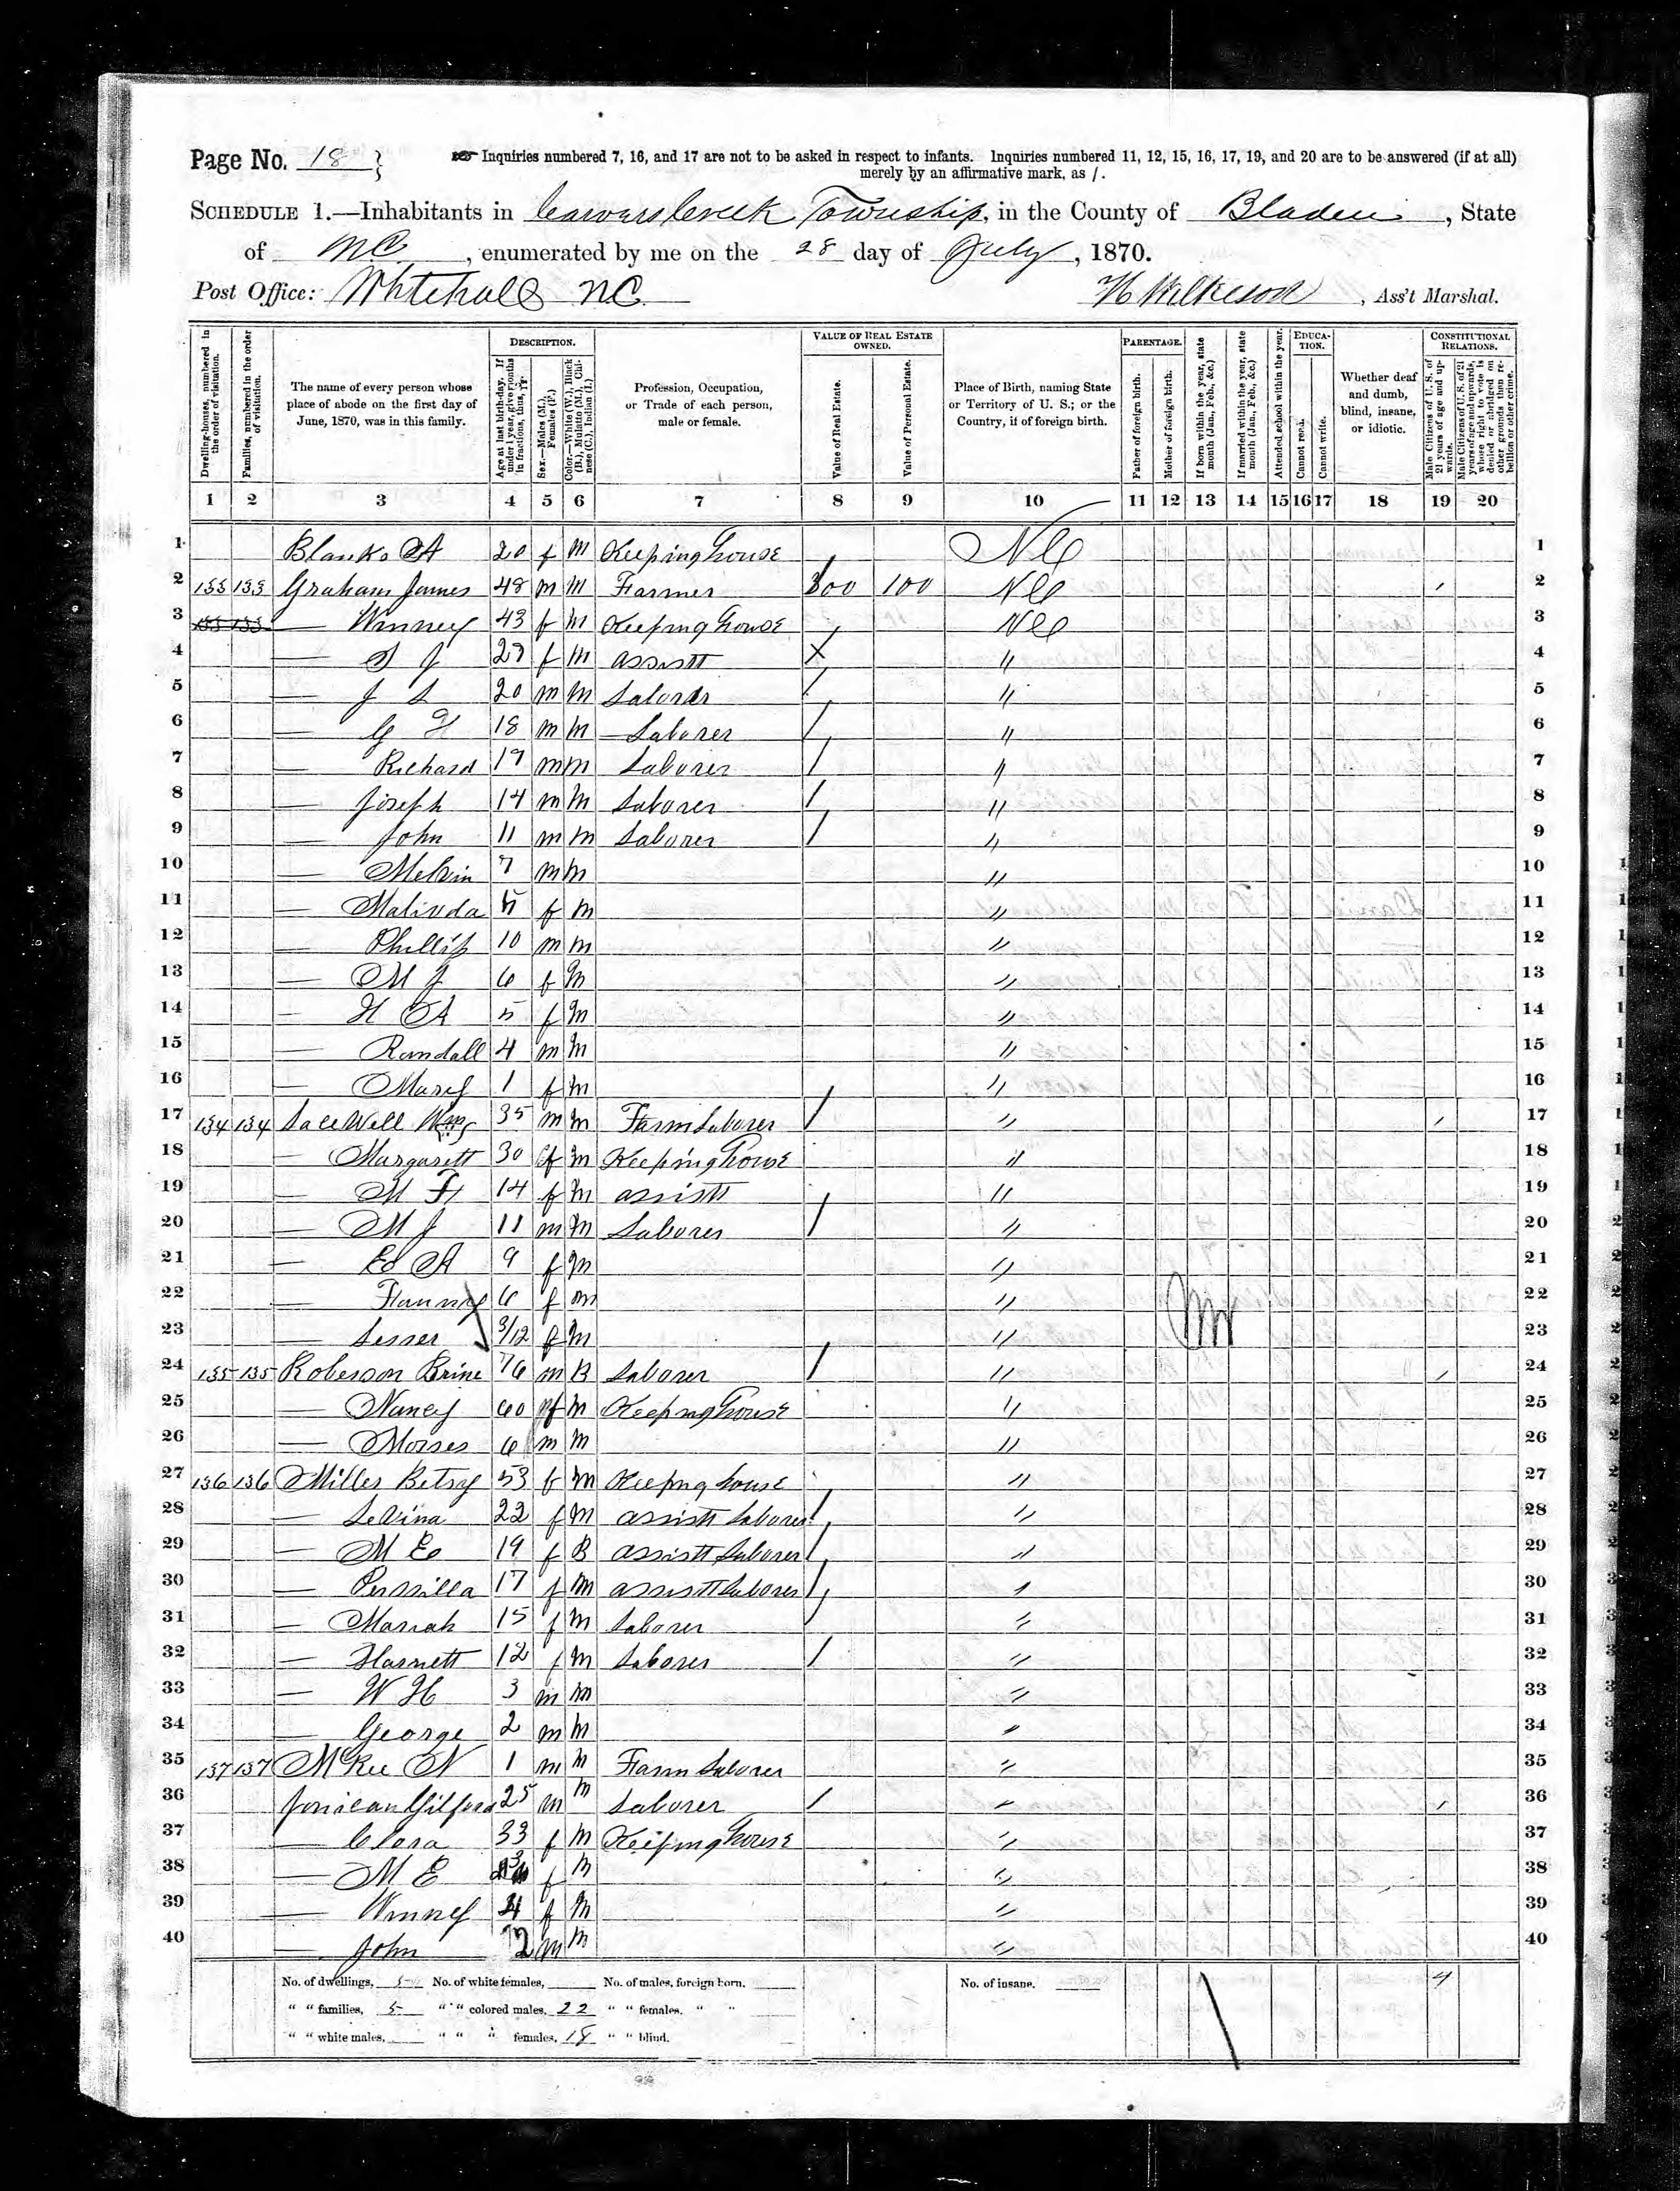 Page No. 18
Inquiries numbered 7, 16, and 17 are not to be asked in respect to infants. Inquiries numbered 11, 12, 15, 16, 17, 19, and 20 are to be answered (if at all)
merely by an affirmative mark, as /.
SCHEDULE 1.—Inhabitants in Township, in the County of Bladen, State
of NC, enumerated by me on the 28 day of July, 1870.
Post Office: Whitehall NC. Wilkeson, Ass't Marshal.
DESCRIPTION. VALUE OF REAL ESTATE OWNED. PARENTAGE. EDUCATION. CONSTITUTIONAL RELATIONS.
Dwelling-houses, numbered in the order of visitation.
Families, numbered in the order of visitation.
The name of every person whose place of abode on the first day of June, 1870, was in this family.
Age at last birth-day. If under 1 year, give months in fractions, thus, 3/12.
Sex.—Males (M.), Females (F.)
Color.—White (W.), Black (B.), Mulatto (M.), Chinese (C.), Indian (I.)
Profession, Occupation, or Trade of each person, male or female.
Value of Real Estate.
Value of Personal Estate.
Place of Birth, naming State or Territory of U. S.; or the Country, if of foreign birth.
Father of foreign birth.
Mother of foreign birth.
If born within the year, state month (Jan., Feb., &c.)
If married within the year, state month (Jan., Feb., &c.)
Attended school within the year.
Cannot read.
Cannot write.
Whether deaf and dumb, blind, insane, or idiotic.
Male Citizens of U. S. of 21 years of age and upwards.
Male Citizens of U. S. of 21 years of age and upwards, whose right to vote is denied or abridged on other grounds than rebellion or other crime.
1 2 3 4 5 6 7 8 9 10 11 12 13 14 15 16 17 18 19 20
1 Blanks A 20 f M Keeping house NC 1
2 133 133 Graham James 48 m M Farmer 300 100 NC / 2
3 — Winney 43 f M Keeping house NC 3
4 — S J f M assistt X " 4
5 — J S 20 m M Laborer / " 5
6 — G 18 m M Laborer / " 6
7 — Richard m M Laborer / " 7
8 — Joseph 14 m M Laborer / " 8
9 — John 11 m M Laborer / " 9
10 — Melvin 7 m M " 10
11 — Malinda f M " 11
12 — Phillip 10 m M " 12
13 — M J 6 f M " 13
14 — H A 5 f M " 14
15 — Randall 4 m M " 15
16 — Mary 1 f M " 16
17 134 134 35 m M Farm Laborer / " / 17
18 — Margarett 30 f M Keeping house " 18
19 — M F 14 f M assistt " 19
20 — M J 11 m M Laborer / " 20
21 — A 9 f M " 21
22 — 6 f M " 22
23 — 3/12 f M " 23
24 135 135 Roberson 76 m B Laborer / " / 24
25 — Nancy 60 f M Keeping house " 25
26 — Moises 6 m M " 26
27 136 136 Miller Betsy 53 f M Keeping house " 27
28 — Levina 22 f M assistt Laborer / " 28
29 — M E 19 f B assistt Laborer / " 29
30 — Perssilla 17 f M assistt Laborer / " 30
31 — Mariah 15 f M Laborer / " 31
32 — Harnett 12 f M Laborer / " 32
33 — W H 3 m M " 33
34 — George 2 m M " 34
35 137 137 McKee N 1 m M Farm Laborer " 35
36 25 m M Laborer / " / 36
37 — Clora 33 f M Keeping house " 37
38 — M E f M " 38
39 — Winney 4 f M " 39
40 — John 2 m M " 40
No. of dwellings, 5 No. of white females, No. of males, foreign born. No. of insane. 4
" " families, 5 " " colored males, 22 " " females, " "
" " white males, " " " females, 18 " " blind.